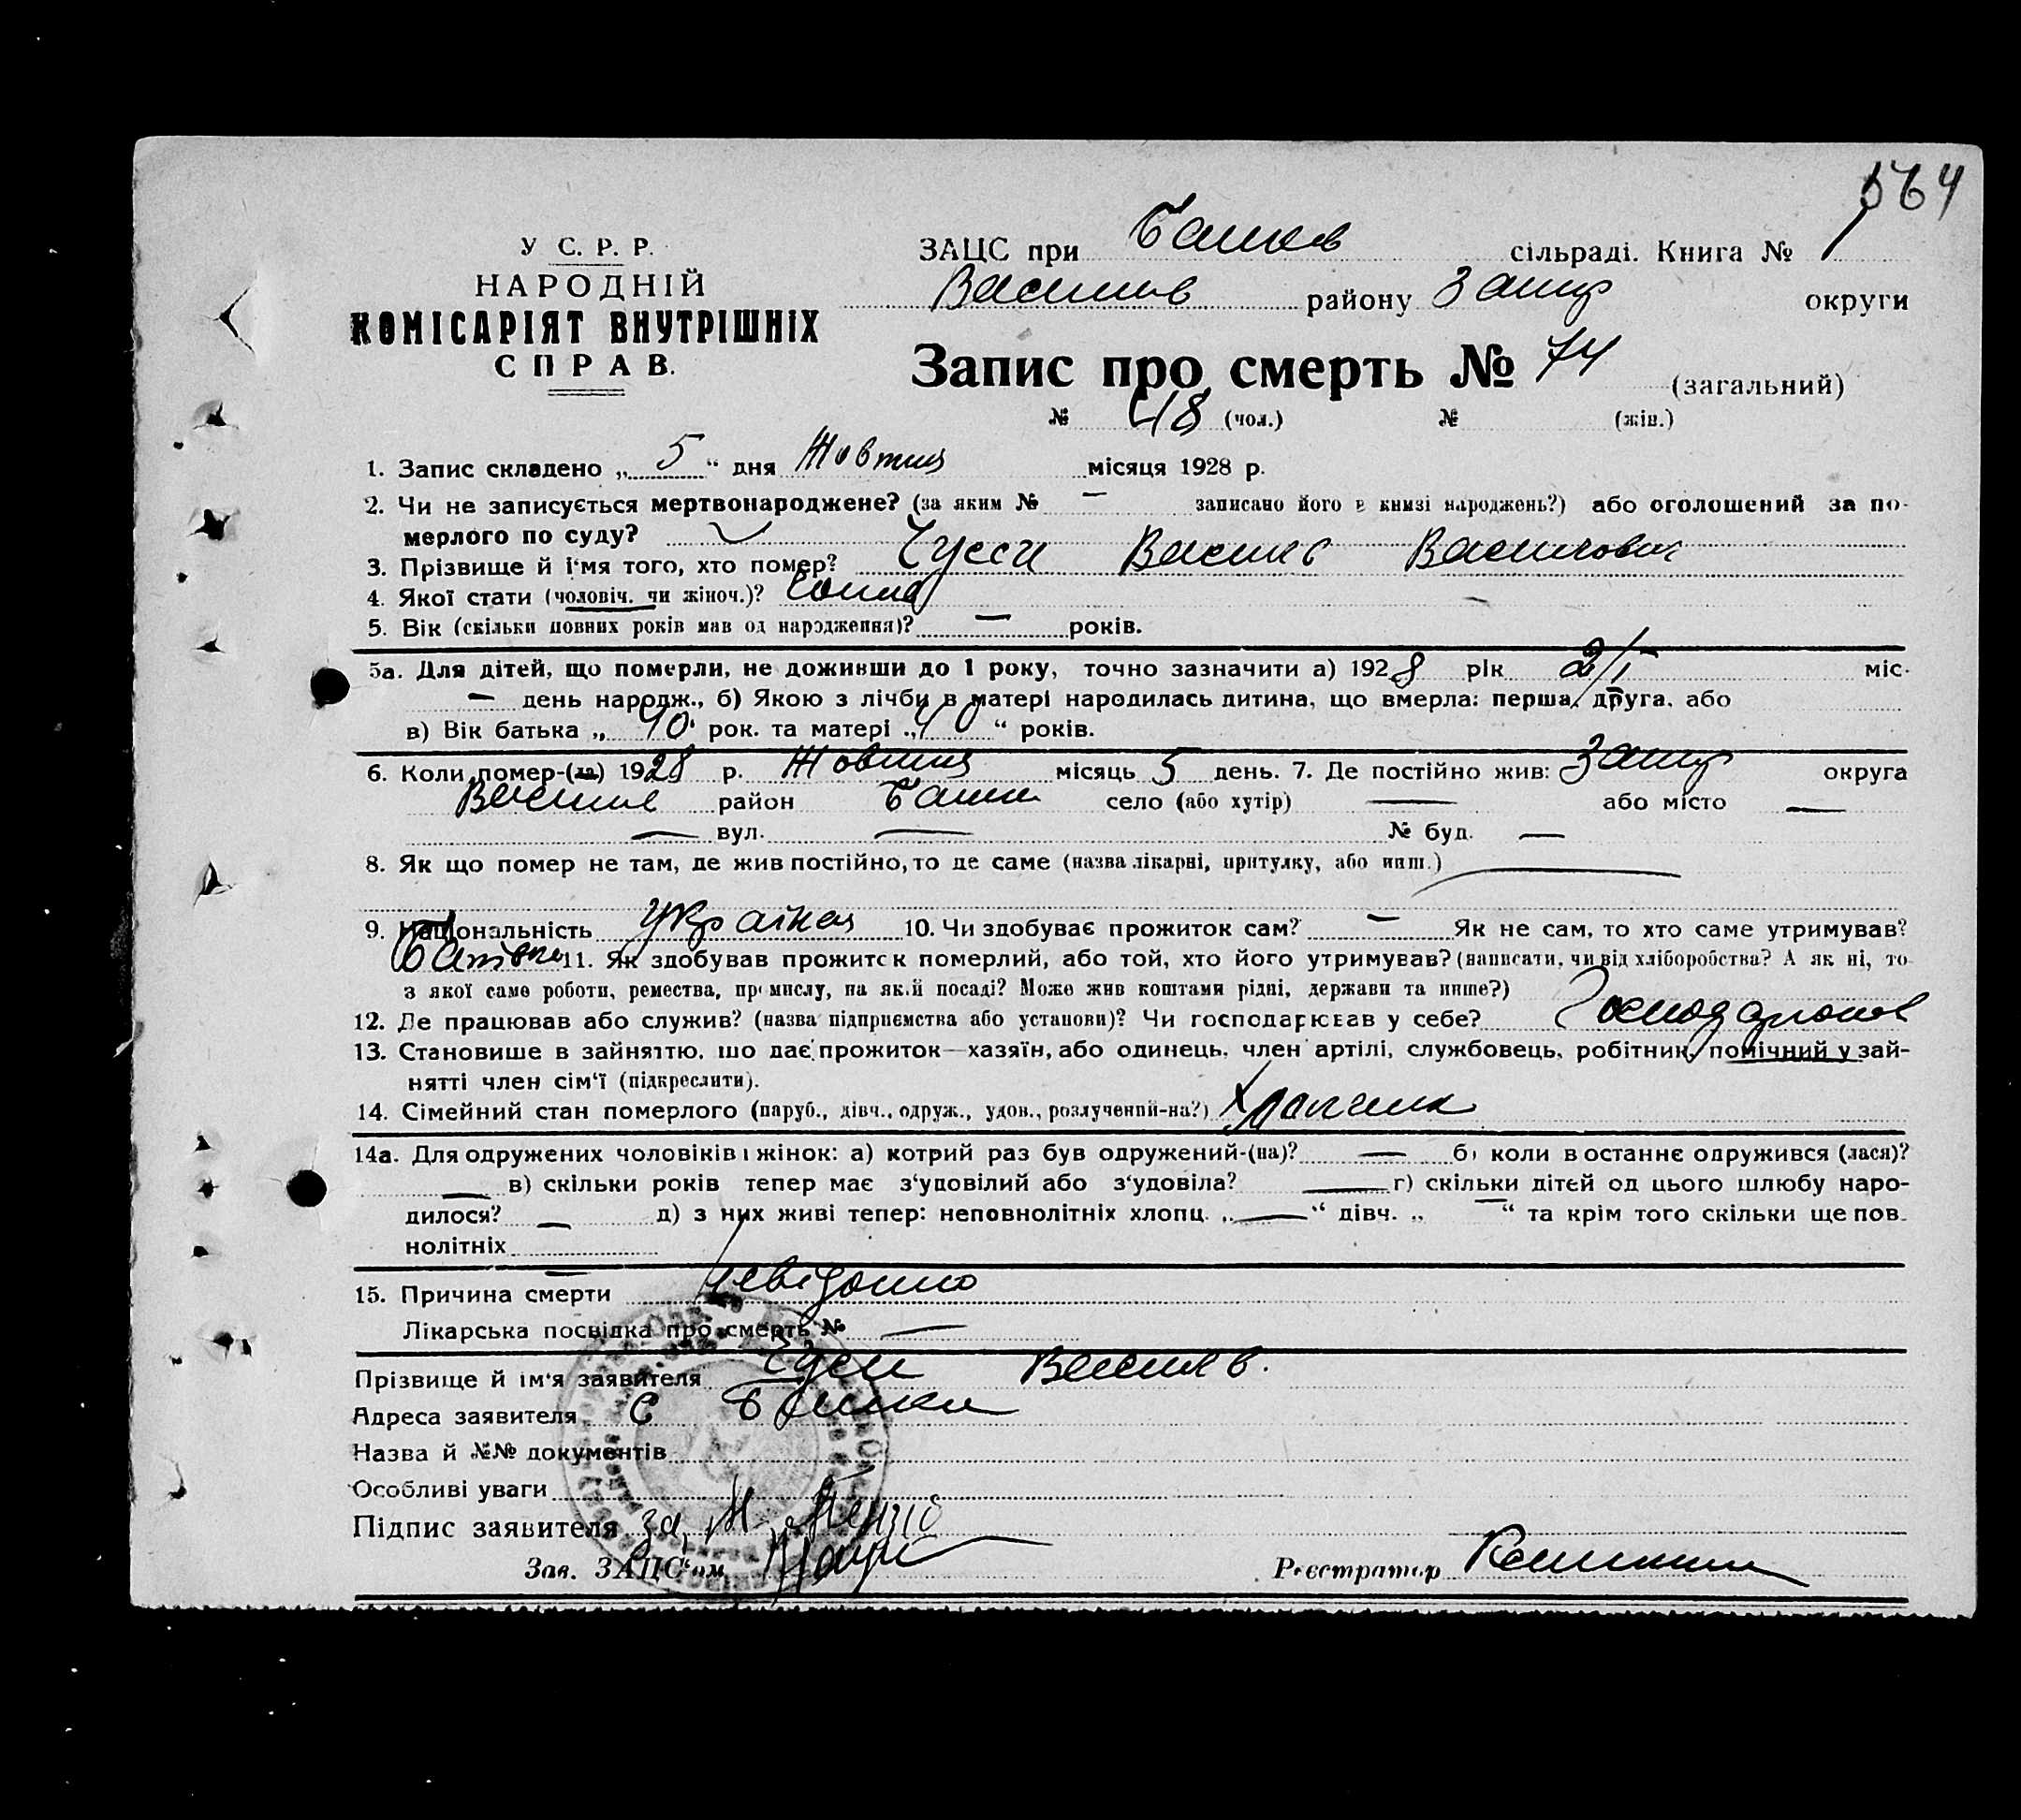 564
У С. Р. Р.
НАРОДНІЙ
КОМІСАРІЯТ ВНУТРІШНІХ
СПРАВ.
ЗАЦС при сільраді. Книга № 1
Василів району Запор округи
Запис про смерть № 74 (загальний)
№ 48 (чол.) № (жін.)
1. Запис складено „ 5 “ дня Жовтня місяця 1928 р.
2. Чи не записується мертвонароджене? (за яким № — записано його в книзі народжень?) або оголошений за по-
мерлого по суду?
3. Прізвище й ім'я того, хто помер? Василь Васильович
4. Якої стати (чоловіч. чи жіноч.)?
5. Вік (скільки повних років мав од народження)? — років.
5а. Для дітей, що померли, не доживши до 1 року, точно зазначити а) 1928 рік міс.
— день народж., б) Якою з лічби в матері народилась дитина, що вмерла: перша, друга, або
в) Вік батька „ 40 “ рок. та матері „ 40 “ років.
6. Коли помер-(ла) 1928 р. Жовтня місяць 5 день. 7. Де постійно жив: Запор округа
Василів район село (або хутір) — або місто —
— вул. — № буд. —
8. Як що помер не там, де жив постійно, то де саме (назва лікарні, притулку, або инш.) —
9. Національність 10. Чи здобуває прожиток сам? — Як не сам, то хто саме утримував?
11. Як здобував прожиток померлий, або той, хто його утримував? (написати, чи від хліборобства? А як ні, то
з якої саме роботи, ремества, промислу, на якій посаді? Може жив коштами рідні, держави та инше?)
12. Де працював або служив? (назва підприємства або установи)? Чи господарював у себе?
13. Становище в зайняттю, що дає прожиток—хазяїн, або одинець, член артілі, службовець, робітник, помічний у зай-
нятті член сім'ї (підкреслити).
14. Сімейний стан померлого (паруб., дівч., одруж., удов., розлучений-на?)
14а. Для одружених чоловіків і жінок: а) котрий раз був одружений-(на)? — б) коли в останнє одружився (лася)?
— в) скільки років тепер має з'удовілий або з'удовіла? — г) скільки дітей од цього шлюбу наро-
дилося? — д) з них живі тепер: неповнолітніх хлопц. „ — “ дівч. „ — “ та крім того скільки ще пов-
нолітніх —
15. Причина смерти невідомо
Лікарська посвідка про смерть № —
Прізвище й ім'я заявителя Василь.
Адреса заявителя с
Назва й №№ документів
Особливі уваги
Підпис заявителя за
Зав. ЗАЦС'ом Реєстратор